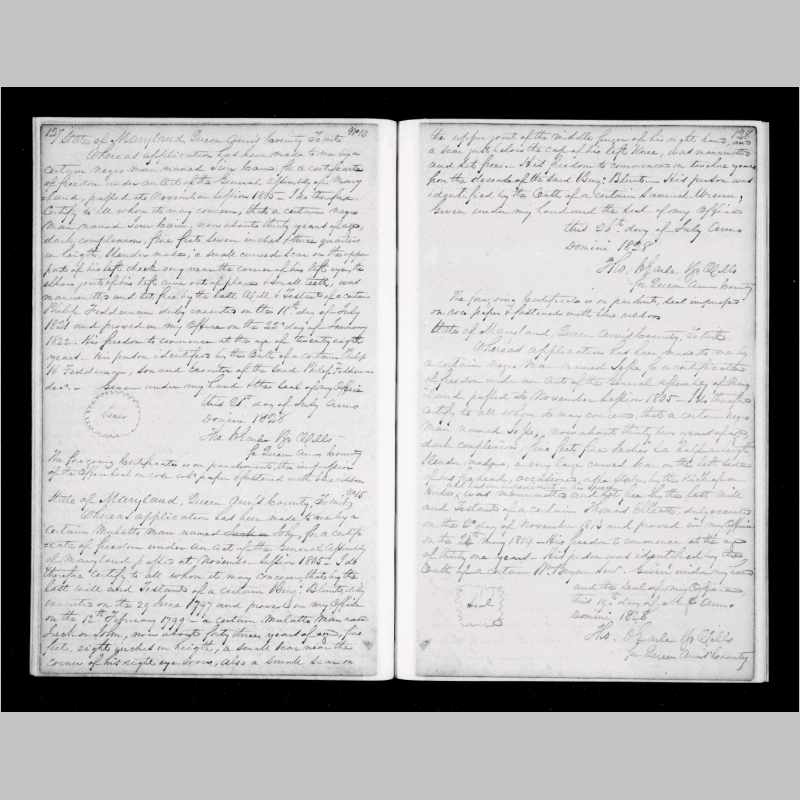 127 State of Maryland, Queen Ann's County, To wit
Whereas application has been made to me by a
certain negro man named for a certificate
of freedom under an act of the General Assembly of Mary
land, passed at November Session 1805 - I do therefore
Certify to all whom it may concern, that a certain negro
Man named now about thirty years of age,
dark complexion, five feet seven inches & three quarters
in height, slender made, a small curved scar on the upper
part of his left cheek bone near the corner of his left eye, the
elbow joint of his left arm out of place & small teeth, was
manumitted and set free by the last Will & Testament of a certain
Philip Feddeman duly executed on the 18th day of July
1821 and proved in my Office on the 22d day of January
1822. His freedom to commence at the age of twenty eight
years. His person identified by the Oath of a certain Philip
W Feddeman, Son and executor of the said Philip Feddeman
decd. Given under my hand & the Seal of my Office
this 21st day of July Anno
Domini 1828
Tho. C Earle Reg Wills
for Queen Anns County
The foregoing Certificate is on parchment, the impression
of the Office Seal on paper & fastened with ribbon
State of Maryland, Queen Ann's County, To wit
Whereas application has been made to me by a
certain Mulatto Man named for a certifi
=cate of freedom under an act of the General Assembly
of Maryland passed at November Session 1805 - I do
therefore certify to all whom it may concern, that by the
last will and Testament of a certain Benj. Blunt, duly
executed on the 29 June 1797 and proved in my Office
on the 12th February 1799 - a certain Mulatto Man named
Jack or John, now about forty three years of age, five
feet, eight inches in height, a small scar near the
corner of his right eye brow, also a small scar on
128
the upper joint of the middle finger of his right hand, and
a scar just below the cap of his left knee, was manumitted
and set free. His freedom to commence in twelve years
from the decease of the said Benj. Blunt - His person was
identified by the Oath of a certain Samuel
Given under my hand and the Seal of my Office
this 26th day of July Anno
Domini 1828
Tho. C Earle Reg Wills
for Queen Anns County
The foregoing Certificate is on parchment, Seal impressed
on paper & fastened with ribbon
State of Maryland, Queen Ann's County, To wit
Whereas application has been made to me by
a certain negro Man named for a certificate
of freedom under an act of the General Assembly of Mary
land passed at November Session 1805 - I do therefore
certify to all whom it may concern, that a certain negro
man named now about thirty two years of age
dark complexion, five feet five inches & a half in height
slender made, a very large curved scar on the left side
of his head, occasioned by the
was manumitted and set free by the last will
and Testament of a certain Thomas duly executed
on the 6th day of November and proved in my Office
on the 24th May 1809 - His freedom to commence at the age
of thirty one years - His person was identified by the
Oath of a certain Wm Bryan Senr. Given under my hand
Seal
and the Seal of my Office
this 19th day of Anno
Domini 1828
Tho. C Earle Reg Wills
for Queen Anns County